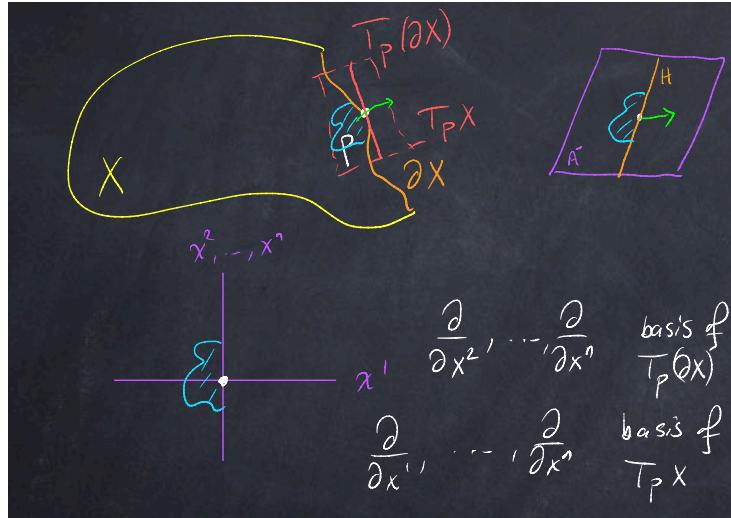 T_p(∂X)
H
T_pX
P
A⁻
X
∂X
x², ..., xⁿ
∂/∂x², ..., ∂/∂xⁿ basis of T_p(∂X)
x¹
∂/∂x¹, ..., ∂/∂xⁿ basis of T_p X